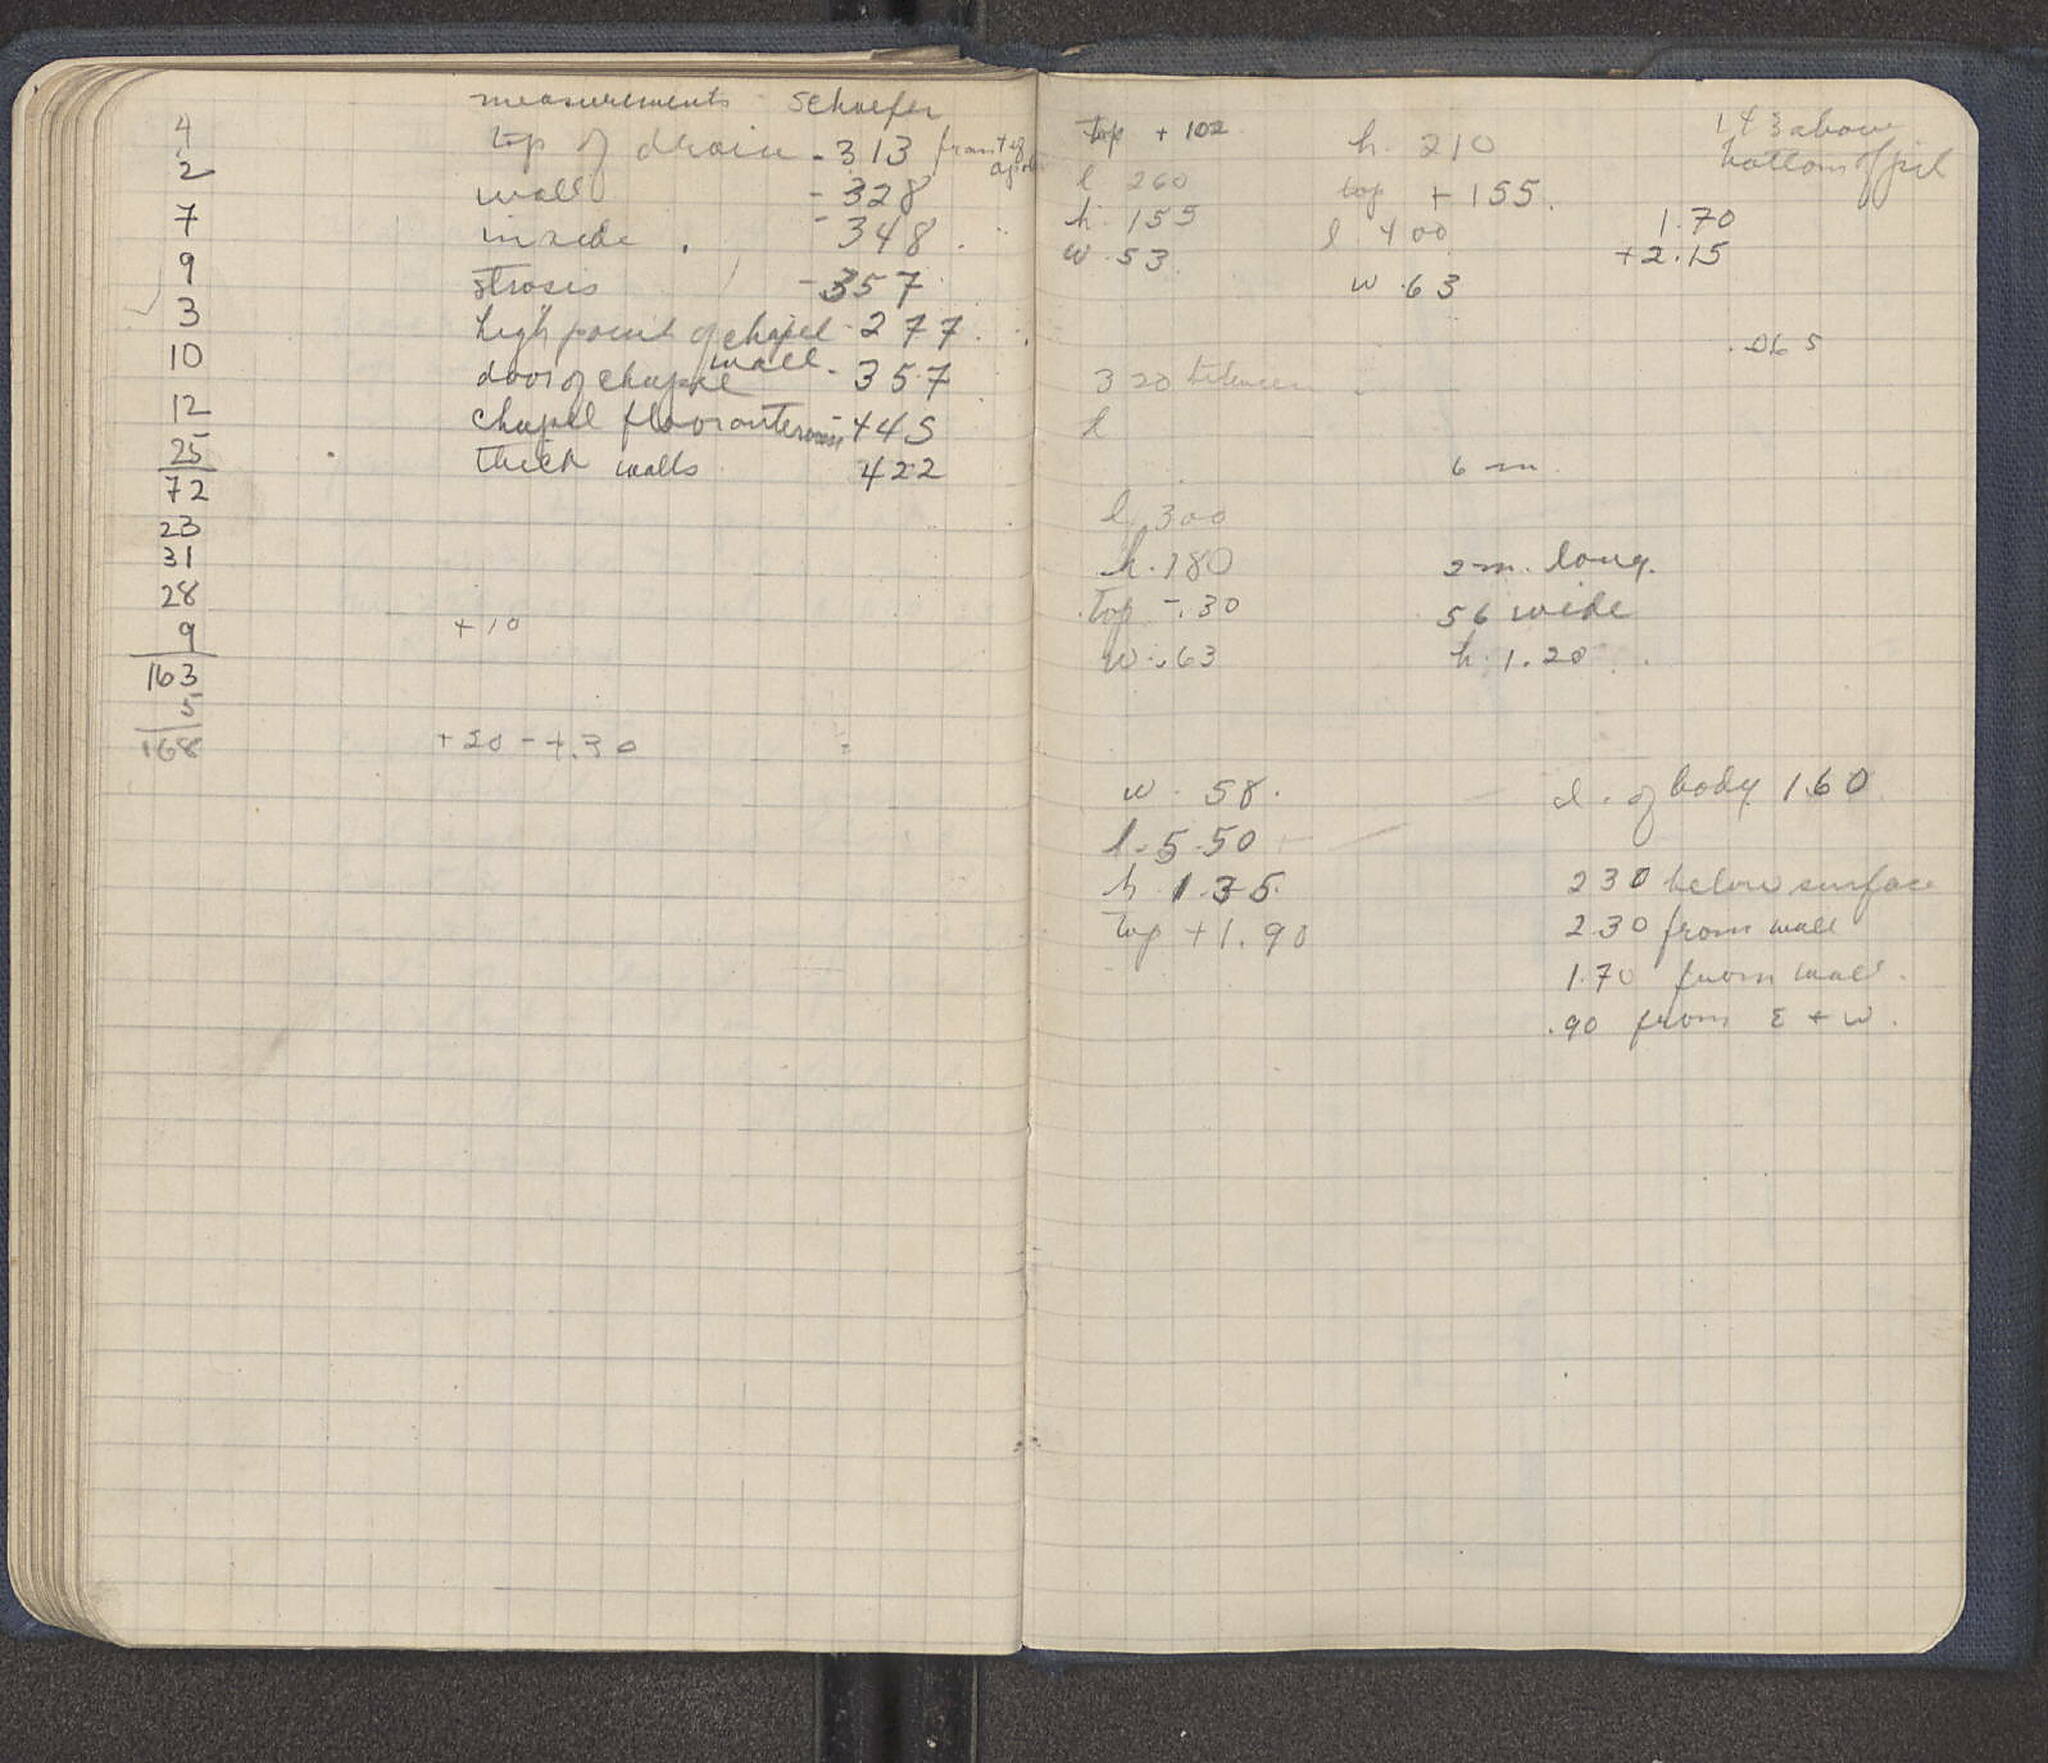 4
2
7
9
3
10
12
25
72
23
31
28
9
163
5
168
measurements - Schaefer
top of drain - 313 front of
wall - 328
inside - 348
strosis - 357
high point of chapel - 277
wall
door of chapel - 357
chapel floor anteroom - 445
thick walls 422
+10
+20 - +.30
top + 102
l 260
h. 155
w .53
h. 210
top + 155.
l 400
w .63
1 + 3 above
bottom of pit
1.70
+2.15
.065
320 between
l
6 m
l 300
h. 180
top -.30
w .63
2 m. long.
56 wide
h. 1.20
w. 58.
l. 5.50
h 1.35.
top +1.90
l. of body 1.60
230 below surface
2.30 from wall
1.70 from wall.
.90 from E + W.